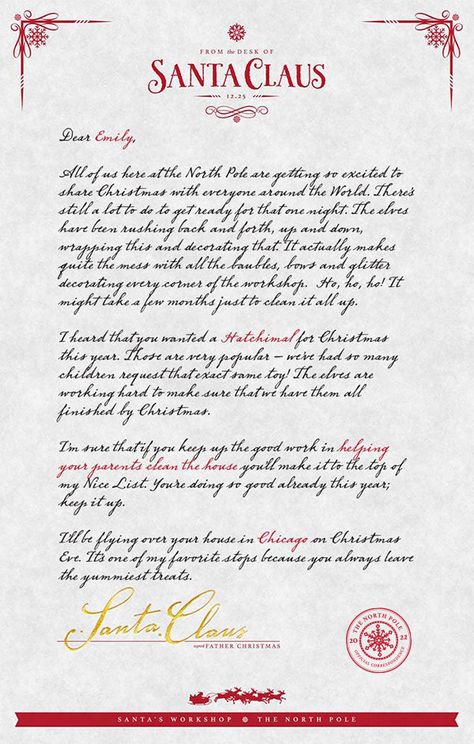 FROM the DESK OF
SANTA CLAUS
12.25
Dear Emily,
All of us here at the North Pole are getting so excited to
share Christmas with everyone around the World. There's
still a lot to do to get ready for that one night. The elves
have been rushing back and forth, up and down,
wrapping this and decorating that. It actually makes
quite the mess with all the baubles, bows and glitter
decorating every corner of the workshop. Ho, ho, ho! It
might take a few months just to clean it all up.
I heard that you wanted a Hatchimal for Christmas
this year. Those are very popular – we've had so many
children request that exact same toy! The elves are
working hard to make sure that we have them all
finished by Christmas.
I'm sure that if you keep up the good work in helping
your parents clean the house you'll make it to the top of
my Nice List. You're doing so good already this year;
keep it up.
I'll be flying over your house in Chicago on Christmas
Eve. It's one of my favorite stops because you always leave
the yummiest treats.
Santa Claus
signed FATHER CHRISTMAS
THE NORTH POLE
20 22
OFFICIAL CORRESPONDENCE
SANTA'S WORKSHOP THE NORTH POLE